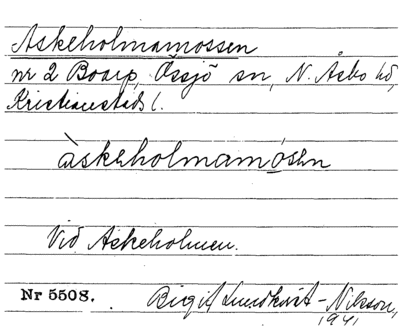 Askeholmamossen
nr 2 Boarp, Össjö sn, N. Åsbo hd,
Kristianstads l.
àskəholmamósən
Vid Askeholmen.
Nr 5508. Birgit Lundkvist-Nilsson,
1941